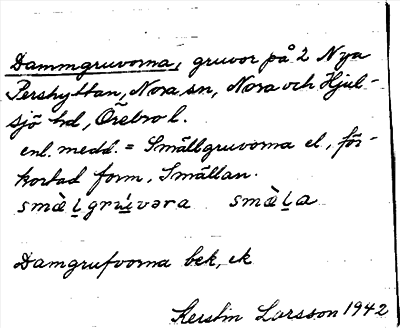 Dammgruvorna, gruvor på 2 Nya
Pershyttan, Nora sn, Nora och Hjul-
sjö hd, Örebro l.
enl. medd. = Smällgruvorna el, för-
kortad form, Smällan.
smæ̀l̠grúvəra smæ̀l̠a
Damgrufvorna bek, ek
Kerstin Larsson 1942